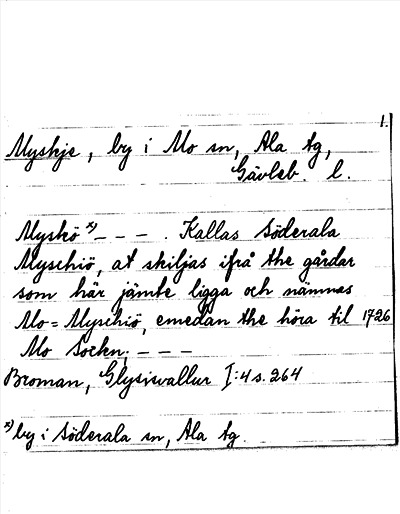 1.
Myskje, by i Mo sn, Ala tg,
Gävleb. l.
Myskö x) – – – . Kallas Söderala
Myschiö, at skiljas ifrå the gårdar
som här jämte ligga och nämnas
Mo=Myschiö, emedan the höra til 1726
Mo Sockn; – – –
Broman, Glysisvallur I:4 s. 264
x) by i Söderala sn, Ala tg.